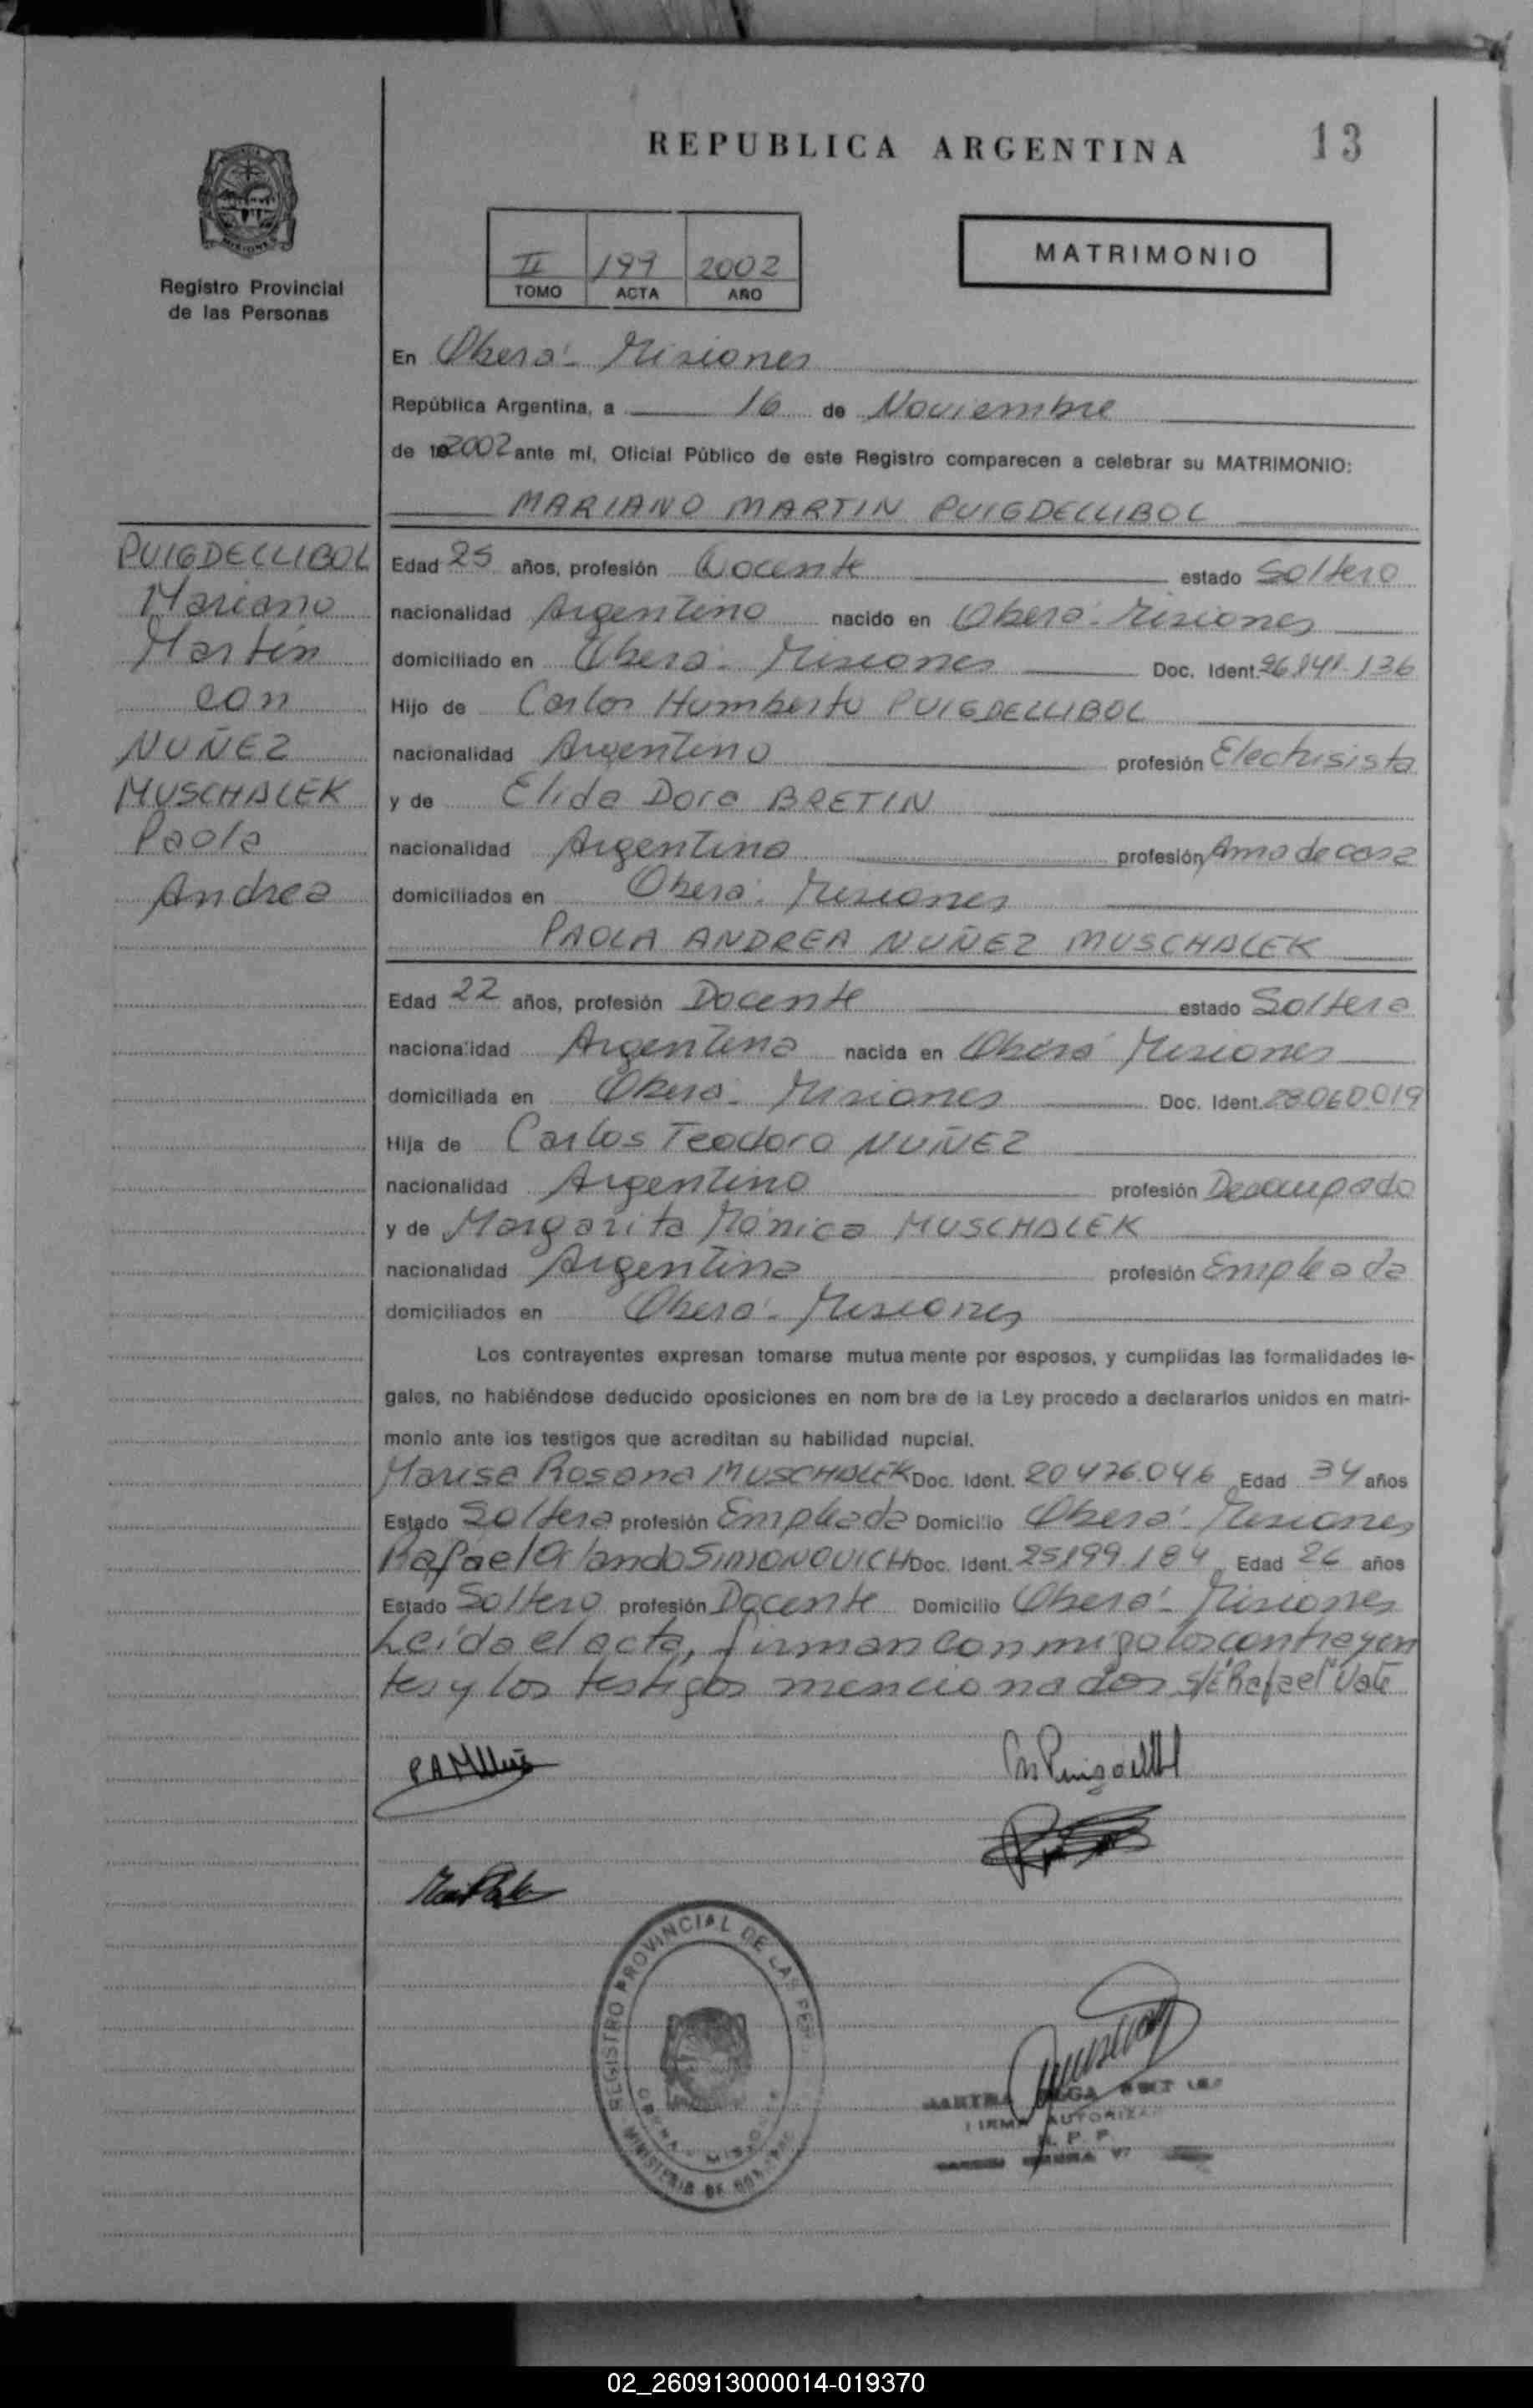 REPUBLICA ARGENTINA
13
MISIONES
Registro Provincial
de las Personas
II 199 2002
TOMO ACTA AÑO
MATRIMONIO
En Oberá - Misiones
República Argentina, a 16 de Noviembre
de 2002 ante mí, Oficial Público de este Registro comparecen a celebrar su MATRIMONIO:
MARIANO MARTIN PUIGDELLIBOL
PUIGDELLIBOL
Mariano
Martín
con
NUÑEZ
MUSCHALEK
Paola
Andrea
Edad 25 años, profesión Docente estado Soltero
nacionalidad Argentino nacido en Oberá - Misiones
domiciliado en Oberá - Misiones Doc. Ident. 136
Hijo de Carlos Humberto PUIGDELLIBOL
nacionalidad Argentino profesión Electrisista
y de Elida Dora BRETIN
nacionalidad Argentina profesión Ama de casa
domiciliados en Oberá - Misiones
PAOLA ANDREA NUÑEZ MUSCHALEK
Edad 22 años, profesión Docente estado Soltera
nacionalidad Argentina nacida en Oberá Misiones
domiciliada en Oberá - Misiones Doc. Ident. 28.060.019
Hija de Carlos Teodoro NUÑEZ
nacionalidad Argentino profesión Desocupado
y de Margarita Mónica MUSCHALEK
nacionalidad Argentina profesión Empleada
domiciliados en Oberá - Misiones
Los contrayentes expresan tomarse mutua mente por esposos, y cumplidas las formalidades le-
gales, no habiéndose deducido oposiciones en nom bre de la Ley procedo a declararlos unidos en matri-
monio ante los testigos que acreditan su habilidad nupcial.
Marisa Rosana MUSCHALEK Doc. Ident. 20.476.046 Edad 34 años
Estado Soltera profesión Empleada Domicilio Oberá - Misiones
Rafael Orlando SIMONOVICH Doc. Ident. 25.199.184 Edad 26 años
Estado Soltero profesión Docente Domicilio Oberá - Misiones
Leída el acta, firman conmigo los contrayen
tes y los testigos mencionados S/E "Rafael" Vale
REGISTRO PROVINCIAL DE LAS
MINISTERIO DE
FIRMA AUTORIZA
02_260913000014-019370